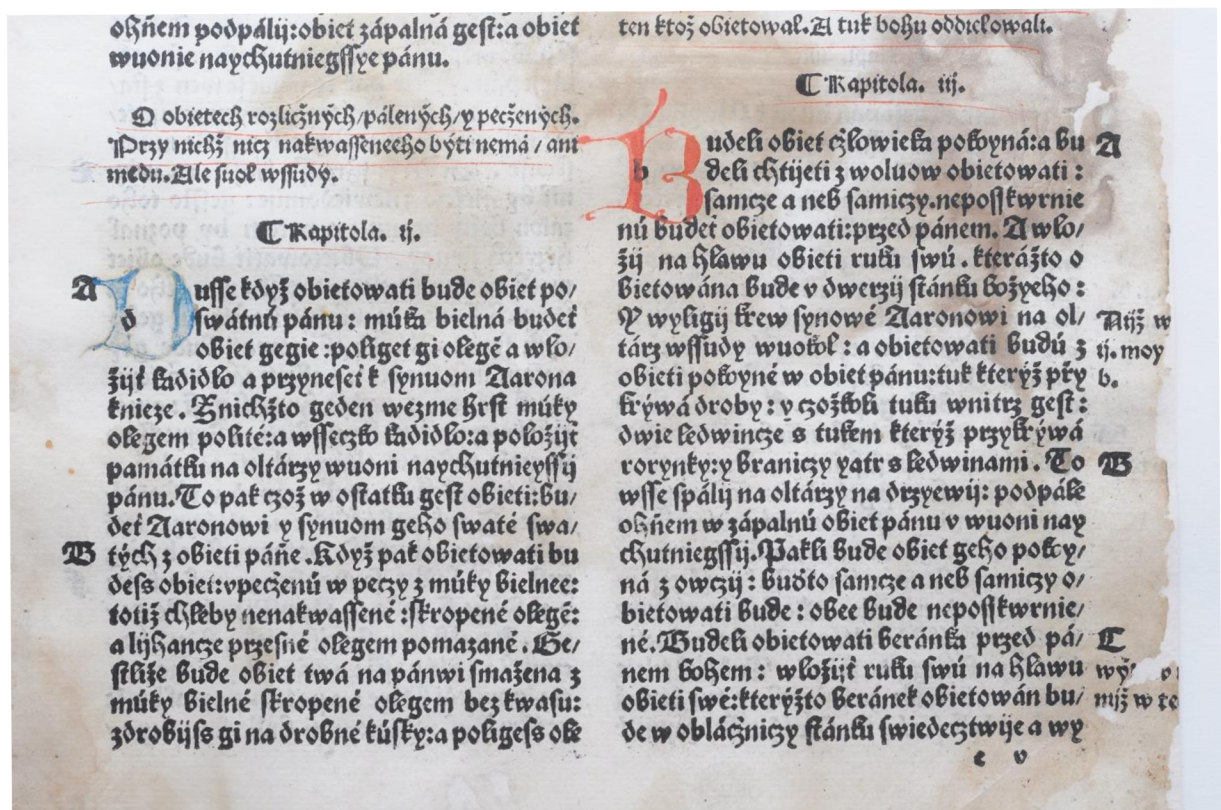 ohňem podpálij:obiet zápalná gest:a obiet
wuonie naychutniegssye pánu.
O obietech rozličných/pálených/y pečžených.
Przy nichž nicz nakwasseneeho býti nemá/ani
medu.Ale suol wssudy.
Kapitola. ij.
A
Dusse když obietowati bude obiet po/
d
swátnú pánu: múka bielná budet
obiet gegie:poliget gi olegē a wlo/
žijt kadidlo a przyneset k synuom Aarona
knieze. Znichžto geden wezme hrst múky
olegem polité:a wsseczko kadidlo:a položijt
památku na oltárzy wuoni naychutnieyssij
pánu.To pak czož w ostatku gest obieti:bu/
det Aaronowi y synuom geho swaté swa/
B
tých z obieti páňe.Když pak obietowati bu
dess obiet:vpeczenú w peczy z múky bielnee:
totiž chleby nenakwassené:skropené olegē:
a lijhancze przesné olegem pomazané. Ge/
stliže bude obiet twá na pánwi smažena z
múky bielné skropené olegem bez kwasu:
zdrobijss gi na drobné kúsky:a poligess ole
ten ktož obietowal.A tuk bohu oddielowali.
Kapitola. iij.
Budeli obiet czlowieka pokoyná:a bu
A
b
deli chtijeti z woluow obietowati:
samcze a neb samiczy.neposskwrnie
nú budet obietowati:przed pánem. A wlo/
žij na hlawu obieti ruku swú. kterážto o
bietowána bude v dwerzij stánku božyeho:
Y wyligij krew synowé Aaronowi na ol/
tárz wssudy wuokol: a obietowati budú z
obieti pokoyné w obiet pánu:tuk kterýž przy
krýwá droby: y czožkoli tuku wnitrz gest:
dwie ledwincze s tukem kterýž przykrýwá
rorynky:y braniczy yatr s ledwinami. To
B
wsse spálij na oltárzy na drzyewij: podpále
ohňem w zápalnú obiet pánu v wuoni nay
chutniegssij.Pakli bude obiet geho pokoy/
ná z owczij: budto samcze a neb samiczy o/
bietowati bude: obee bude neposskwrnie/
né.Budeli obietowati beránka przed pá/
C
nem bohem: wložijt ruku swú na hlawu
obieti swé:kterýžto beránek obietowán bu/
de w obláczniczy stánku swiedecztwije a wy
c v
Niíž w
ij. moy
b.
wýž
mijž w te